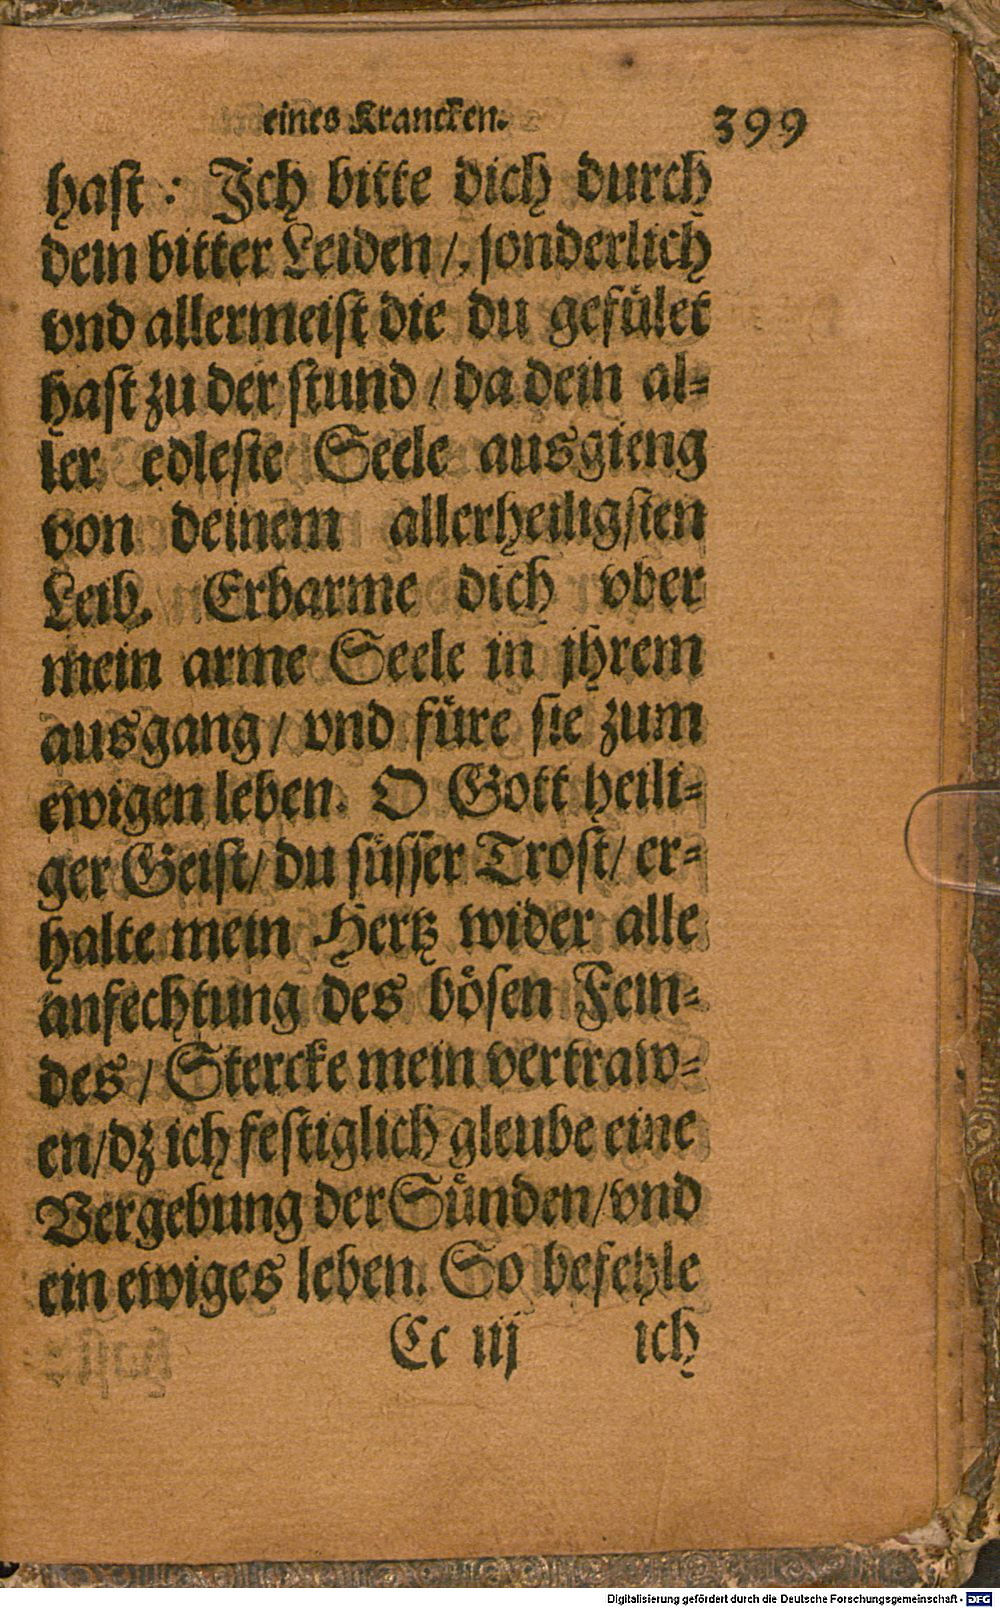 eines Krancken. 399
hast: Jch bitte dich durch
dein bitter Leiden /, sonderlich
vnd allermeist die du gefület
hast zu der stund / da dein al=
ler edleste Seele ausgieng
von deinem allerheiligsten
Leib. Erbarme dich vber
mein arme Seele in jhrem
ausgang / vnd füre sie zum
ewigen leben. O Gott heili=
ger Geist / du süsser Trost / er=
halte mein Hertz wider alle
anfechtung des bösen Fein=
des / Stercke mein vertraw=
en / dz ich festiglich gleube eine
Vergebung der Sünden / vnd
ein ewiges leben. So befehle
Cc iij ich
Digitalisierung gefördert durch die Deutsche Forschungsgemeinschaft - DFG